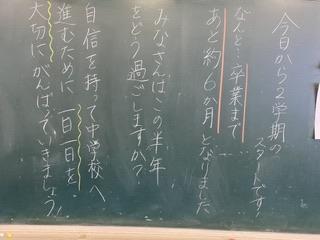 今日から2学期の
スタートです!
なんと…卒業まで
あと約6か月となりました
みなさんはこの半年
をどう過ごしますか?
自信を持って中学校へ
進むために一日一日を
大切にがんばっていきましょう!